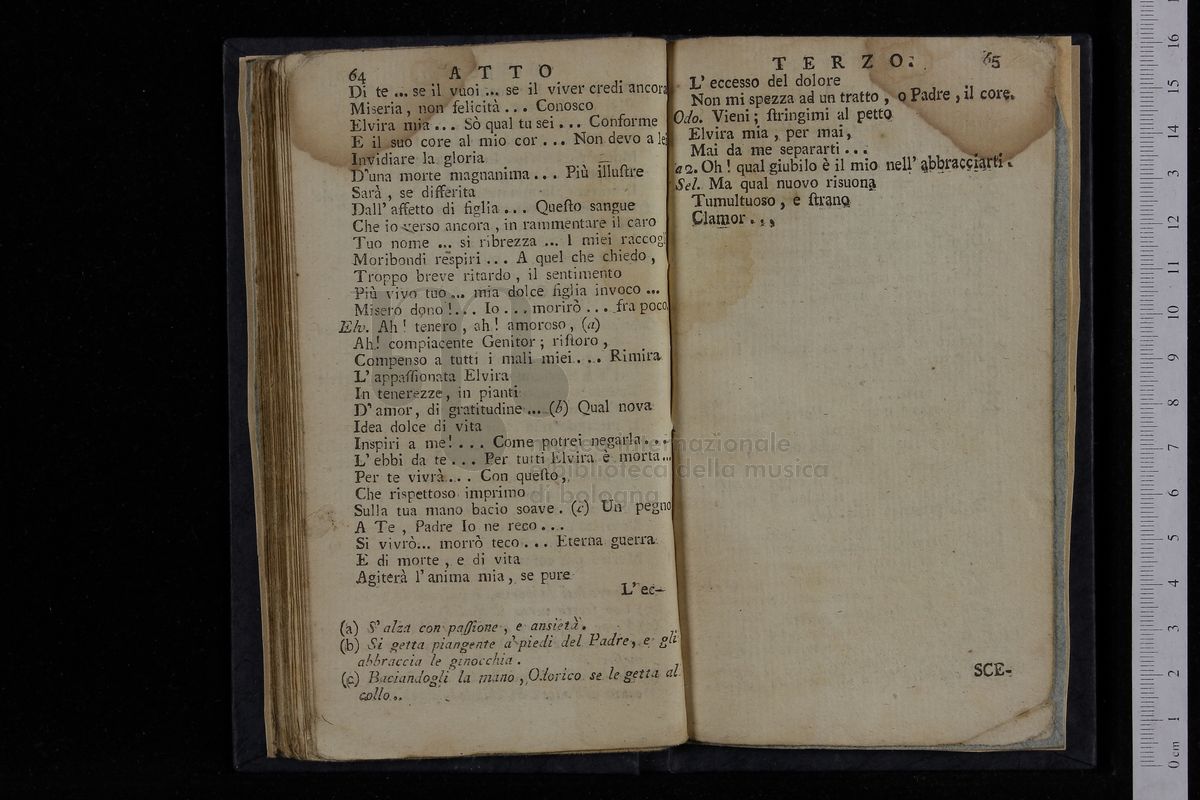 64 ATTO
Di te ... se il vuoi ... se il viver credi ancora
Miseria, non felicità ... Conosco
Elvira mia ... Sò qual tu sei ... Conforme
E il suo core al mio cor ... Non devo a lei
Invidiare la gloria
D'una morte magnanima ... Più illuſtre
Sarà, se differita
Dall' affetto di figlia ... Queſto sangue
Che io verso ancora, in rammentare il caro
Tuo nome ... si ribrezza ... I miei raccogli
Moribondi respiri ... A quel che chiedo,
Troppo breve ritardo, il sentimento
Più vivo tuo ... mia dolce figlia invoco ...
Misero dono! ... Io ... morirò ... fra poco.
Elv. Ah! tenero, ah! amoroso, (a)
Ah! compiacente Genitor; riſtoro,
Compenso a tutti i mali miei ... Rimira
L' appaſſionata Elvira
In tenerezze, in pianti
D' amor, di gratitudine ... (b) Qual nova
Idea dolce di vita
Inspiri a me! ... Come potrei negarla ...
L' ebbi da te ... Per tutti Elvira è morta ...
Per te vivrà ... Con queſto,
Che rispettoso imprimo
Sulla tua mano bacio soave. (c) Un pegno
A Te, Padre Io ne reco ...
Si vivrò ... morrò teco ... Eterna guerra
E di morte, e di vita
Agiterà l' anima mia, se pure
L' ec-
(a) S' alza con paſſione, e ansietà.
(b) Si getta piangente a' piedi del Padre, e gli
abbraccia le ginocchia.
(c) Baciandogli la mano, Odorico se le getta al
collo.
TERZO. 65
L' eccesso del dolore
Non mi spezza ad un tratto, o Padre, il core.
Odo. Vieni; ſtringimi al petto
Elvira mia, per mai,
Mai da me separarti ...
a 2. Oh! qual giubilo è il mio nell' abbracciarti.
Sel. Ma qual nuovo risuona
Tumultuoso, e ſtrano
Clamor ...
SCE-
museo internazionale
e biblioteca della musica
di bologna
0 cm 1 2 3 4 5 6 7 8 9 10 11 12 13 14 15 16